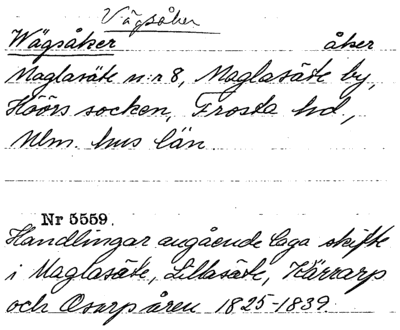 Vägsåker
Wägsåker åker
Maglasäte n:r 8, Maglasäte by,
Höörs socken, Frosta hd.,
Mlm. hus län
Nr 5559.
Handlingar angående laga skifte
i Maglasäte, Lillasäte, Kärrarp
och Osarp åren 1825-1839.